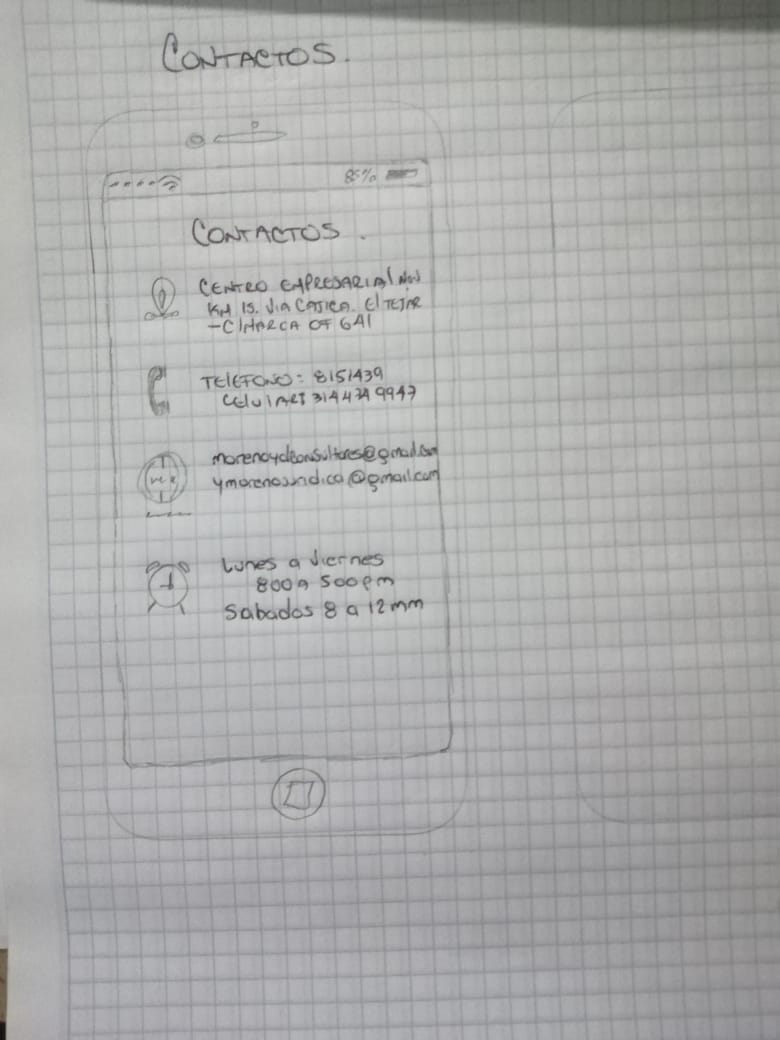 CONTACTOS.
85%
CONTACTOS.
CENTRO EMPRESARIAL
KM 15. VIA CAJICA. El TEJAR
- C/MARCA OF 641
TELEFONO: 8151439
CELULAR: 314 474 9947
morenoydconsultores@gmail.com
ymorenojuridica@gmail.com
Lunes a viernes
800 a 500pm
Sabados 8 a 12mm